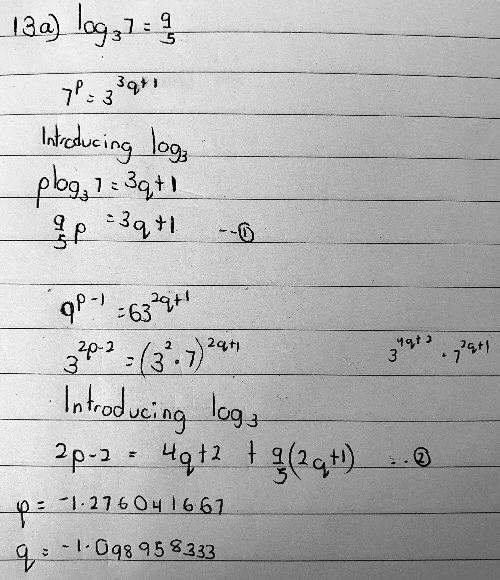 13a) log₃7 = 9/5
7^p = 3^(3q+1)
Introducing log₃
plog₃7 = 3q+1
9/5 p = 3q+1 --①
9^(p-1) = 63^(2q+1)
3^(2p-2) = (3²·7)^(2q+1) 3^(4q+2) · 7^(2q+1)
Introducing log₃
2p-2 = 4q+2 + 9/5(2q+1) --②
p = -1.276041667
q = -1.098958333